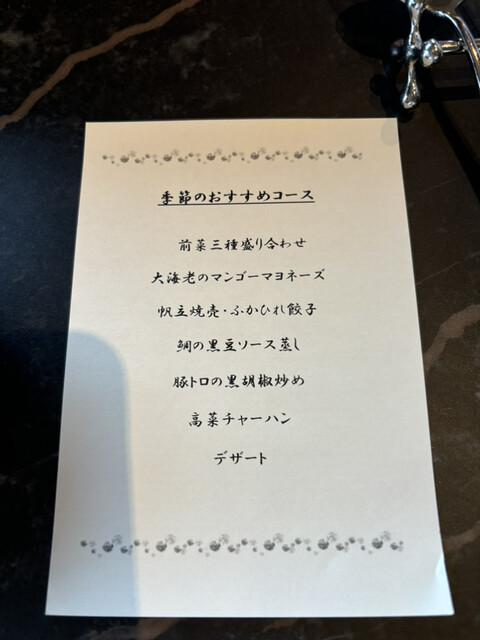 季節のおすすめコース
前菜三種盛り合わせ
大海老のマンゴーマヨネーズ
帆立焼売・ふかひれ餃子
鯛の黒豆ソース蒸し
豚トロの黒胡椒炒め
高菜チャーハン
デザート